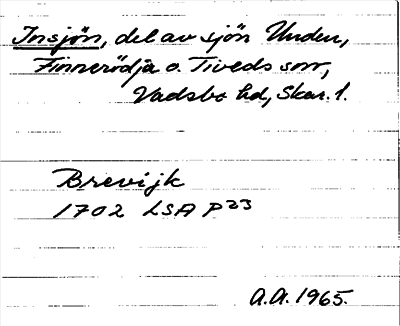 Insjön, del av sjön Unden,
Finnerödja o. Tiveds snr,
Vadsbo hd, Skar. l.
Brevijk
1702 LSA P23
A.A. 1965.